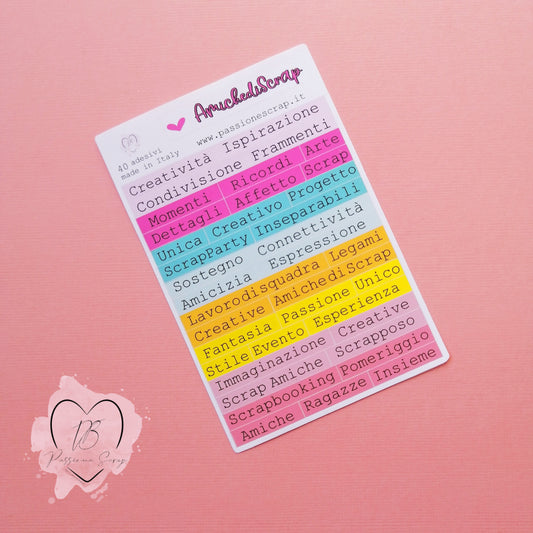 AmichediScrap
www.passionescrap.it
40 adesivi
made in Italy
Creatività Ispirazione
Condivisione Frammenti
Momenti Ricordi Arte
Dettagli Affetto Scrap
Unica Creativo Progetto
ScrapParty Inseparabili
Sostegno Connettività
Amicizia Espressione
Lavorodisquadra Legami
Creative AmichediScrap
Fantasia Passione Unico
Stile Evento Esperienza
Immaginazione Creative
Scrap Amiche Scrapposo
Scrapbooking Pomeriggio
Amiche Ragazze Insieme
PB
Passione Scrap